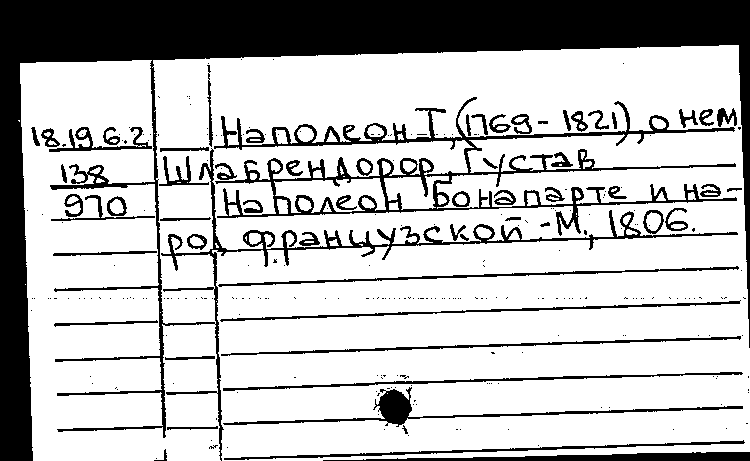 18.19.6.2 Наполеон I, (1769-1821), о нем
138 Шлабрендорор, Густав
970 Наполеон Бонапарте и на-
род французской.-М., 1806.